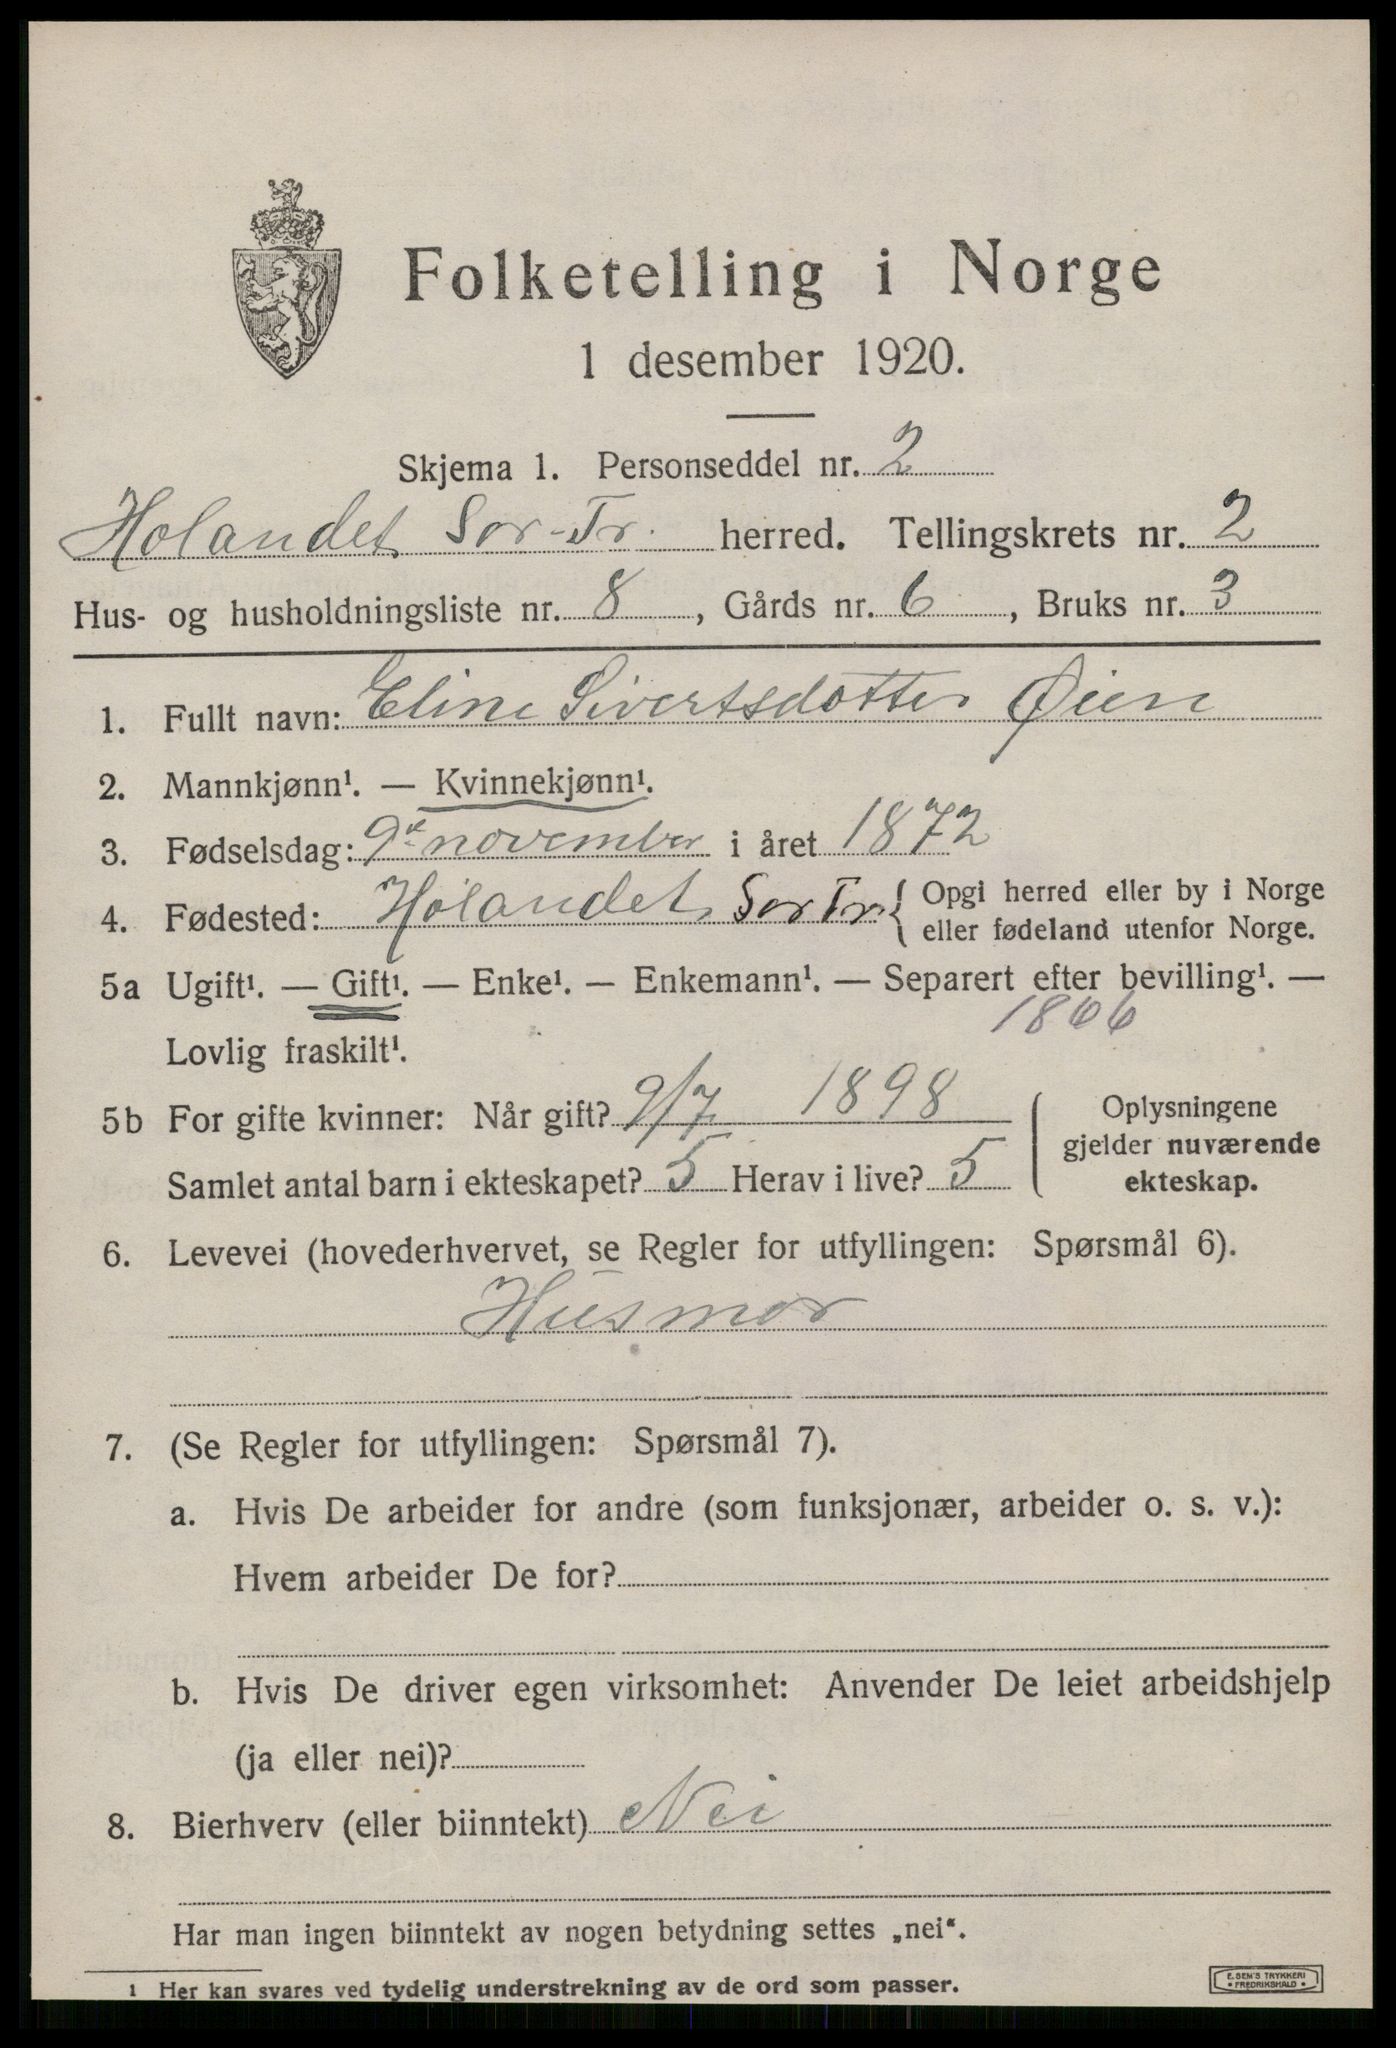 Folketelling i Norge
1 desember 1920.
Skjema 1. Personseddel nr. 2
Holandet Sør-Tr. herred. Tellingskrets nr. 2
Hus- og husholdningsliste nr. 8, Gårds nr. 6, Bruks nr. 3
1. Fullt navn: Eline Sivertsdotter Øien
2. Mannkjønn¹. — Kvinnekjønn¹.
3. Fødselsdag: 9de november i året 1872
4. Fødested: Hølandet Sør Tr. { Opgi herred eller by i Norge
eller fødeland utenfor Norge.
5a Ugift¹. — Gift¹. — Enke¹. — Enkemann¹. — Separert efter bevilling¹. —
1866
Lovlig fraskilt¹.
5b For gifte kvinner: Når gift? 9/7 1898
Samlet antal barn i ekteskapet? 5 Herav i live? 5
Oplysningene
gjelder nuværende
ekteskap.
6. Levevei (hovederhvervet, se Regler for utfyllingen: Spørsmål 6).
Husmor
7. (Se Regler for utfyllingen: Spørsmål 7).
a. Hvis De arbeider for andre (som funksjonær, arbeider o. s. v.):
Hvem arbeider De for?
b. Hvis De driver egen virksomhet: Anvender De leiet arbeidshjelp
(ja eller nei)?
8. Bierhverv (eller biinntekt) Nei
Har man ingen biinntekt av nogen betydning settes „nei“.
1 Her kan svares ved tydelig understrekning av de ord som passer.
E. SEM'S TRYKKERI
• FREDRIKSHALD •